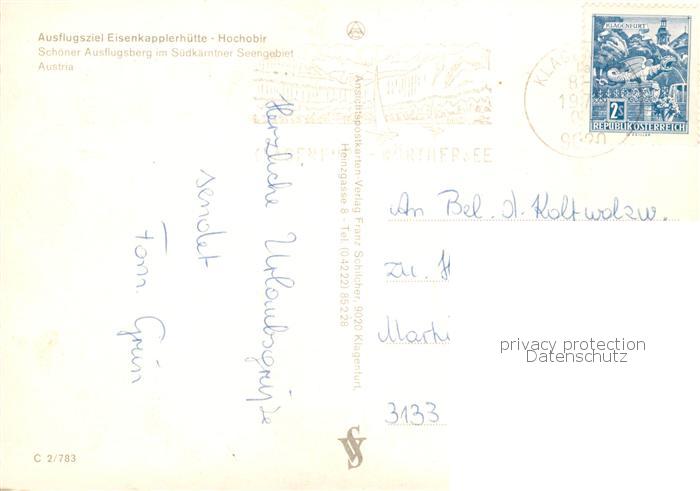 Ausflugsziel Eisenkapplerhütte - Hochobir
Schöner Ausflugsberg im Südkärntner Seengebiet
Austria
Herzliche Urlaubsgrüße
sendet
Fam. Grün
Ansichtspostkarten-Verlag Franz Schilcher, 9020 Klagenfurt,
Heinzgasse 8 - Tel. (04222) 85228
C 2/783
KLAGENFURT
2S
REPUBLIK ÖSTERREICH
9020
WÖRTHERSEE
An Bel. d. Kaltwalzw.
zu. H
Marti
3133
privacy protection
Datenschutz